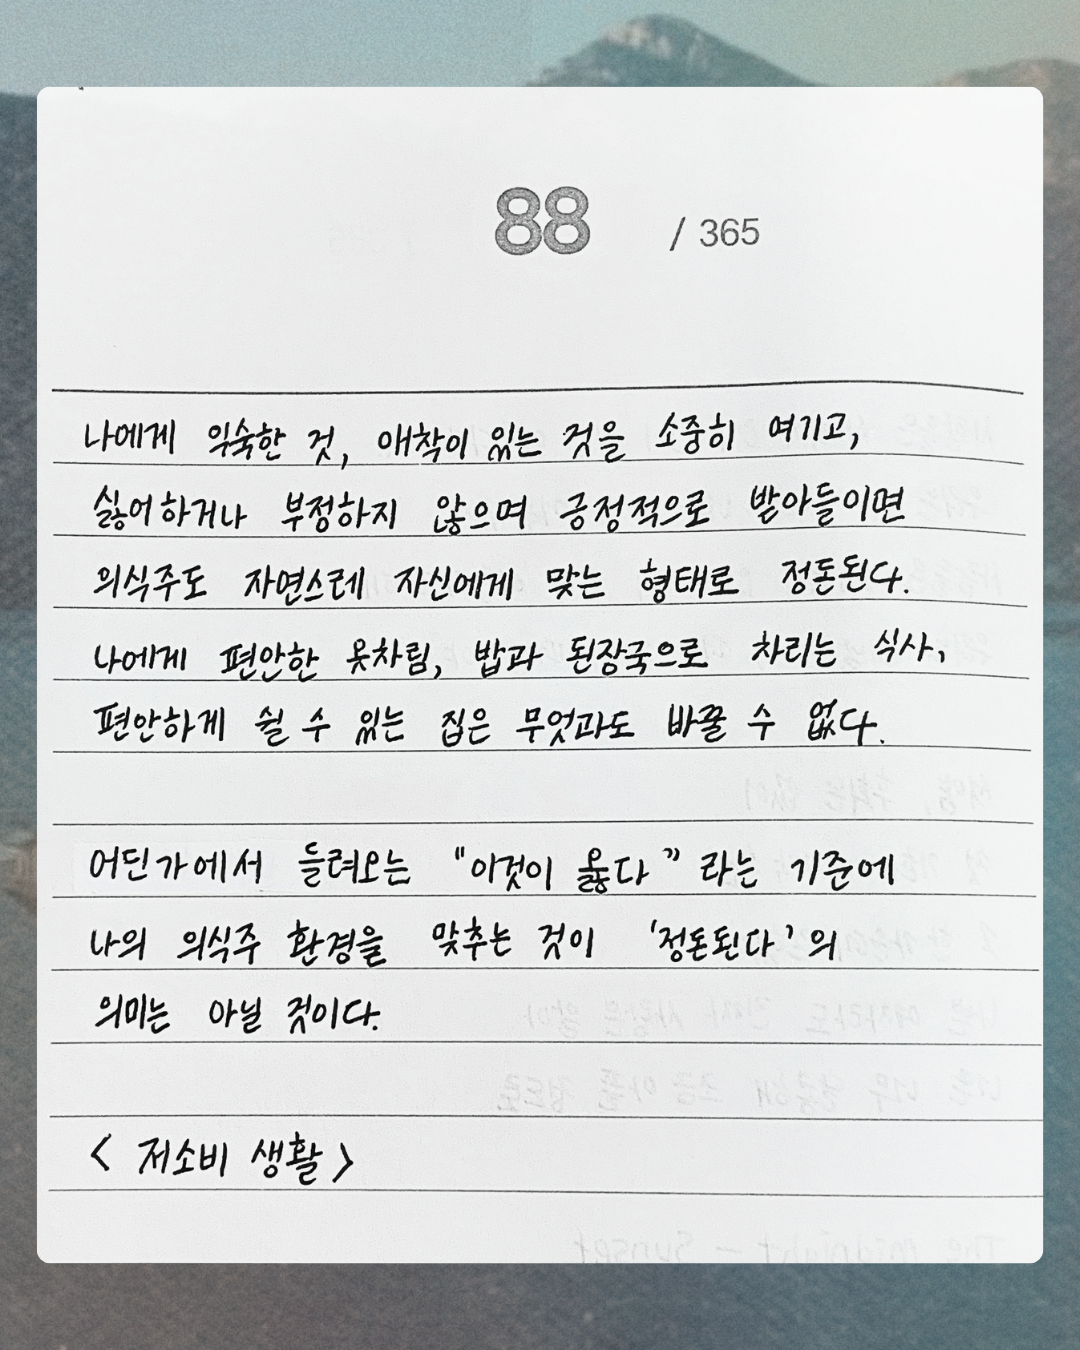 88 / 365
나에게 익숙한 것, 애착이 있는 것을 소중히 여기고,
싫어하거나 부정하지 않으며 긍정적으로 받아들이면
의식주도 자연스레 자신에게 맞는 형태로 정돈된다.
나에게 편안한 옷차림, 밥과 된장국으로 차리는 식사,
편안하게 쉴 수 있는 집은 무엇과도 바꿀 수 없다.
어딘가에서 들려오는 "이것이 옳다" 라는 기준에
나의 의식주 환경을 맞추는 것이 '정돈된다'의
의미는 아닐 것이다.
< 저소비 생활 >